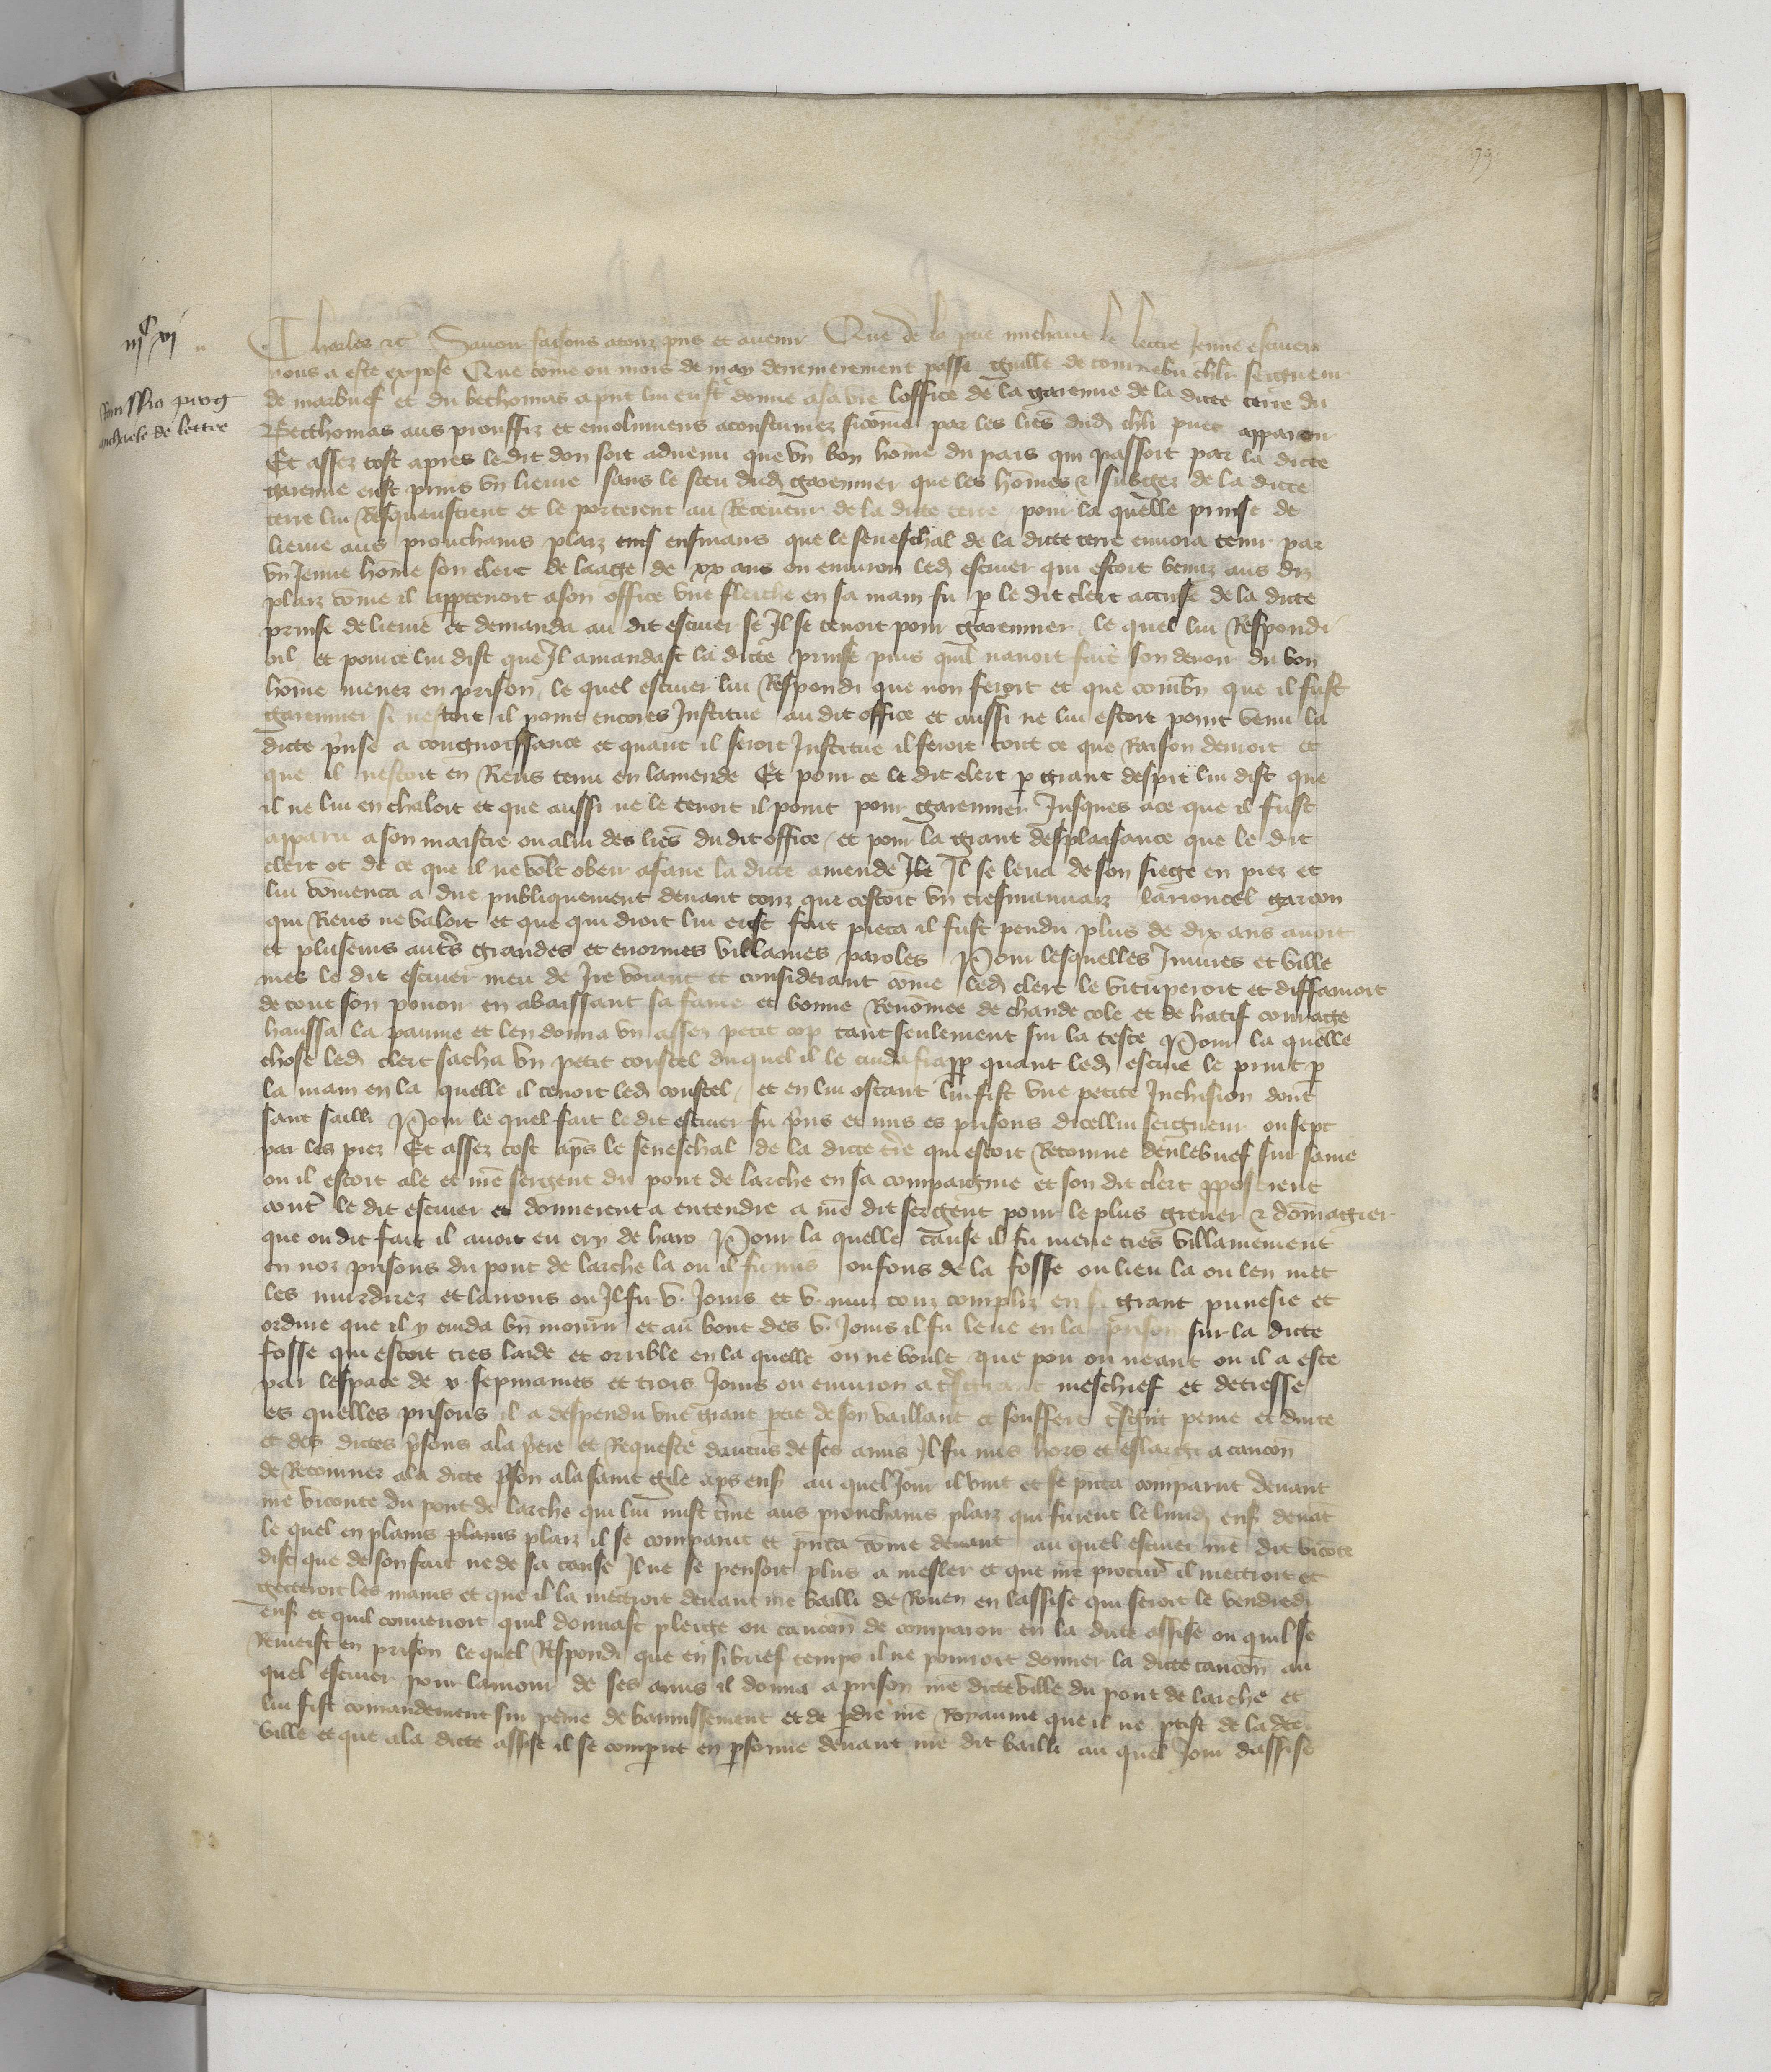 199
iijᶜ vj
Remissio pro
michaele de lettre
Charles etc Savoir faisons a touz pns et avenir Que de la ptie michaut le lettre Jenne escuier
nous a este expose Que come ou mois de may derrenierement passe guille de tournebu chlr seigneur
de marbuef et du bethomas apnt lui eust donne a sa vie loffice de la garenne de la dicte terre du
Becthomas aus prouffiz et emolumens acoustumez sicome par les lres dud chlr puet apparoir
Et assez tost apres ledit don soit advenu que un bon home du pais qui passoit par la dicte
garenne eust prins un lievre sans le sceu dud garennier que les homes & subgez de la dicte
terre lui Resqueustrent et le porterent au Receveur de la dicte terre pour la quelle prinse de
lievre aus prouchains plaiz ensuivans que le seneschal de la dicte terre envoia tenir par
un Jenne home son clerc de laage de xx ans ou environ led escuier qui estoit venuz aus diz
plaiz come il appartenoit a son office une fleiche en sa main fu p le dit clerc accuse de la dicte
prinse de lievre et demanda au dit escuier se Il se tenoit pour garennier le quel lui Respondi
oil et pour ce lui dist que Il amandast la dicte prinse puis quil navoit fait son devoir du bon
home mener en prison le quel escuier lui Respondi que non feroit et que combn que il fust
garennier si nestoit il point encores Institue au dit office et aussi ne lui estoit point venu la
dicte prise a congnoissance et quant il seroit Institue il feroit tout ce que Raison devroit et
que il nestoit en Riens tenu en lamende Et pour ce le dit clerc p grant despit lui dist que
il ne lui en chaloit et que aussi ne le tenoit il point pour garennier Jusques a ce que il fust
apparu a son maistre ou a lui des lres du dit office et pour la grant desplaisance que le dit
clerc ot de ce que il ne volt obeir a faire la dicte amende Il se leva de son siege en piez et
lui comenca a dire publiquement devant touz que cestoit un tresmauvaiz larroncel garcon
qui Riens ne valoit et que qui droit lui eust fait pieca il fust pendu plus de dix ans avoit
et pluseurs autres grandes et enormes villaines paroles Pour lesquelles Injures et ville
nies le dit escuier meu de Ire voiant et considerant come led clerc le vituperoit et diffamoit
de tout son povoir en abaissant sa fame et bonne Renomee de chaude cole et de hatif courage
haussa la paume et len donna un assez petit cop tant seulement sur la teste Pour la quelle
chose led clerc sacha un petit coustel duquel il le cuida frapp quant led escuie le print p
la main en la quelle il tenoit led coustel et en lui ostant lui fist une petite Inchision dont
sanc sailli Pour le quel fait le dit escuier fu prins et mis es prisons dicellui seigneur ou sept
par les piez Et assez tost aps le seneschal de la dicte tre qui estoit Retourne delebuef sur saine
ou il estoit ale et nre sergent du pont de larche en sa compaignie et son dit clerc pposerent
contre le dit escuier et donnerent a entendre a nre dit sergent pour le plus grever & domagier
que ou dit fait il avoit eu cry de haro Pour la quelle cause il fu mene tres villainement
en noz prisons du pont de larche la ou il fu mis ou fons de la fosse ou lieu la ou len met
les murdriers et larrons ou Il fu v. Jours et v. nuiz touz compliz en si grant punesie et
ordure que il y cuida bn mourir et au bout des v. Jours il fu leve en la prison sur la dicte
fosse qui estoit tres laide et orrible en la quelle on ne voult que pou ou neant ou il a este
par lespace de v. sepmaines et trois Jours ou environ a tsgrant meschief et detresse
es quelles prisons il a despendu une grant ptie de son vaillant et souffert tsgnt peine et durte
et des dictes prisons a la priere et Requeste daucuns de ses amis Il fu mis hors et eslargi a caucon
de Retourner a la dicte prison a la saint gile aps ens au quel Jour il vint et se pnta comparut devant
nre viconte du pont de larche qui lui mist tme aus prouchains plaiz qui furent le lundi ens devant
le quel en plains plaiz il se comparut et pnta come devant au quel escuier nre dit viconte
dist que de son fait ne de sa cause Il ne se pensoit plus a mesler et que nre procur il mectroit et
gecteroit les mains et que il la mectroit devant nre bailli de Rouen en lassise qui seroit le vendredi
ens et quil convenoit quil donnast pleige ou caucon de comparoir en la dicte assise ou quil se
Remeist en prison le quel Respondi que en si brief temps il ne pourroit donner la dicte caucon au
quel escuier pour lamour de ses amis il donna a prison nre dicte ville du pont de larche et
lui fist comandement sur peine de bannissement et de pdre nre Royaume que il ne ptist de la dte
ville et que a la dicte assise il se comput en psonne devant nre dit bailli au quel Jour dassise